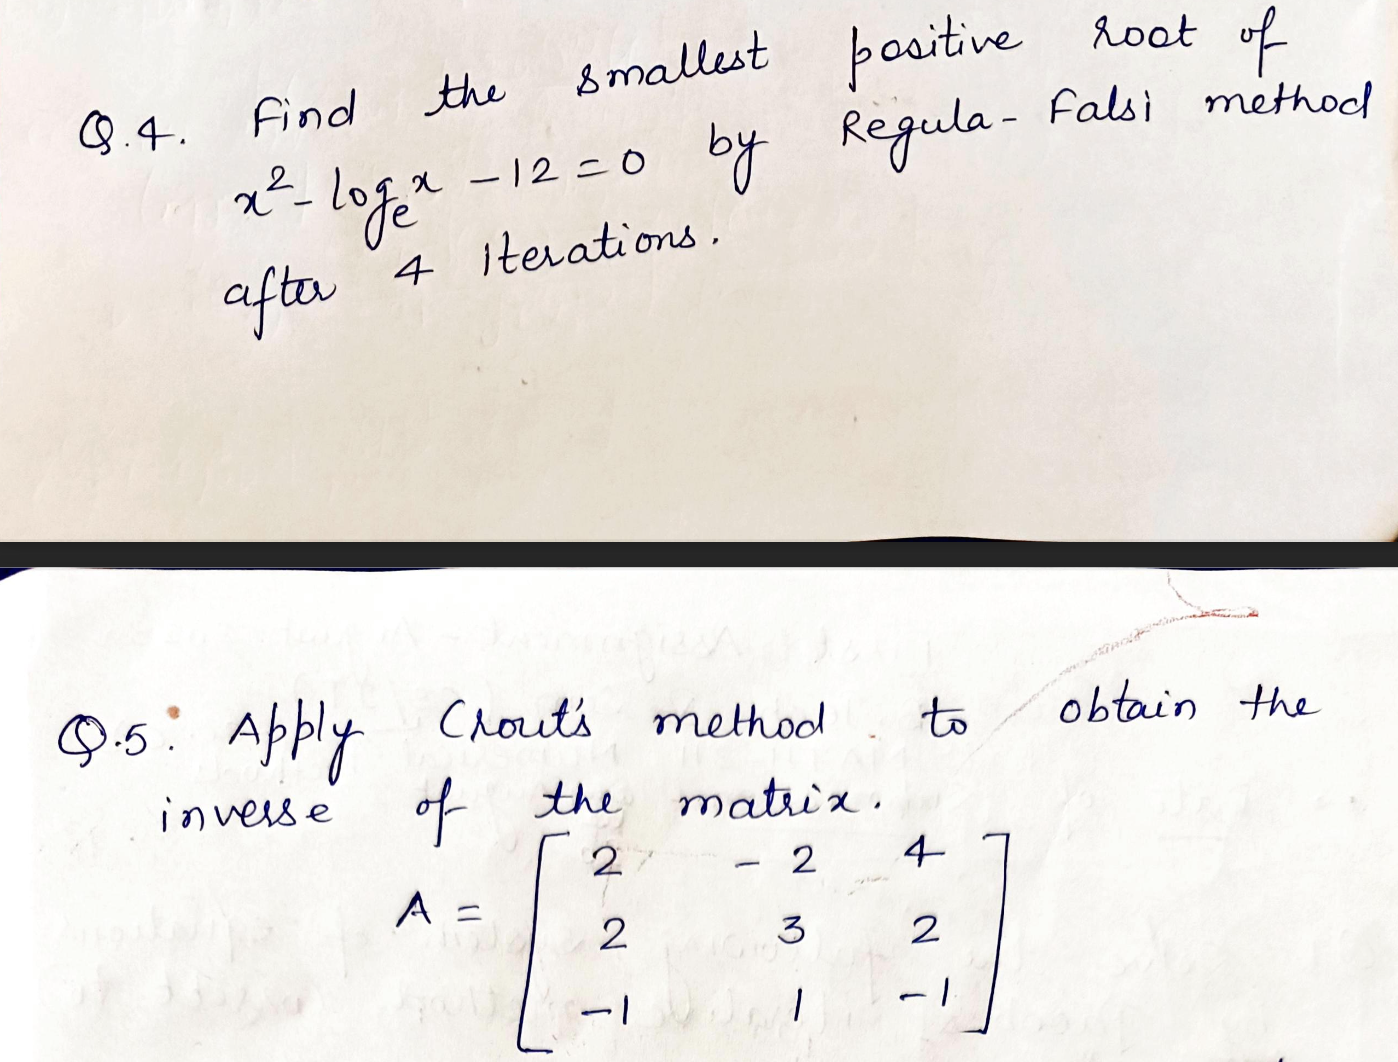 Q.4. Find the smallest positive root of
x² - logₑx - 12 = 0 by Regula - Falsi method
after 4 iterations.
Q.5. Apply Crout's method to obtain the
inverse of the matrix.
A = [ 2 -2 4
2 3 2
-1 1 -1 ]